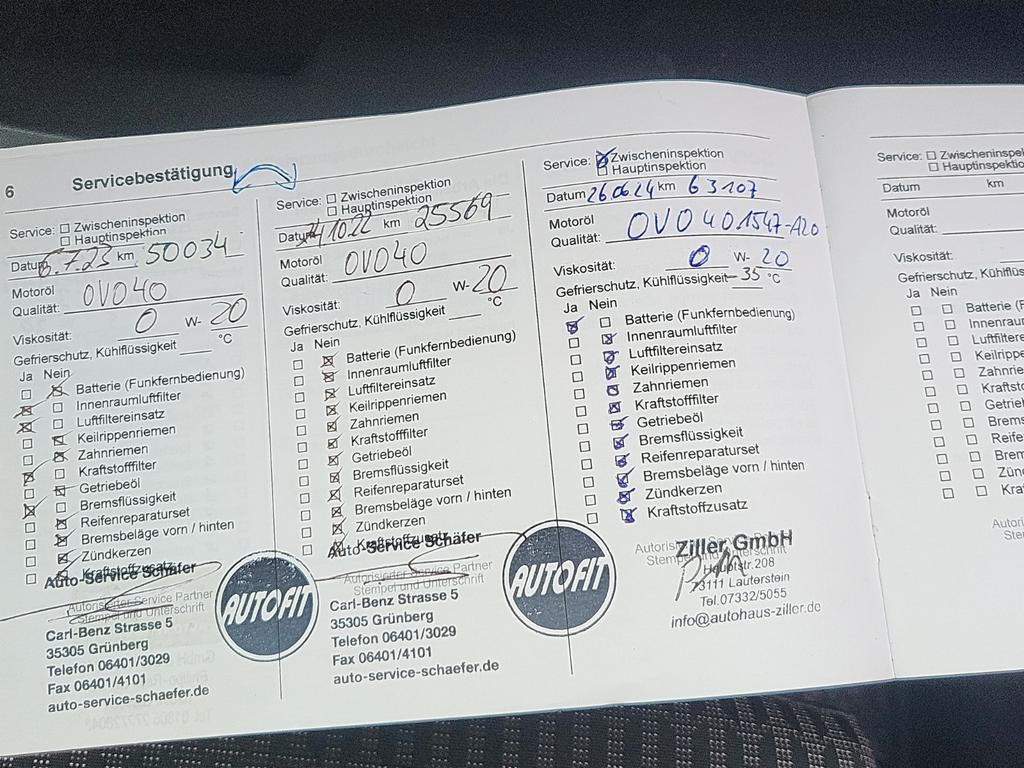 6 Servicebestätigung
Service: Zwischeninspektion
Hauptinspektion
Datum 6.7.23 km 50034
Motoröl
Qualität: OVO40
Viskosität: 0 W- 20
Gefrierschutz, Kühlflüssigkeit °C
Ja Nein
Batterie (Funkfernbedienung)
Innenraumluftfilter
Luftfiltereinsatz
Keilrippenriemen
Zahnriemen
Kraftstofffilter
Getriebeöl
Bremsflüssigkeit
Reifenreparaturset
Bremsbeläge vorn / hinten
Zündkerzen
Kraftstoffzusatz
Auto-Service Schäfer
Autorisierter Service Partner
Stempel und Unterschrift
Carl-Benz Strasse 5
35305 Grünberg
Telefon 06401/3029
Fax 06401/4101
auto-service-schaefer.de
AUTOFIT
Service: Zwischeninspektion
Hauptinspektion
Datum 10.22 km 25569
Motoröl
Qualität: OVO40
Viskosität: 0 W- 20
Gefrierschutz, Kühlflüssigkeit °C
Ja Nein
Batterie (Funkfernbedienung)
Innenraumluftfilter
Luftfiltereinsatz
Keilrippenriemen
Zahnriemen
Kraftstofffilter
Getriebeöl
Bremsflüssigkeit
Reifenreparaturset
Bremsbeläge vorn / hinten
Zündkerzen
Kraftstoffzusatz
Auto-Service Schäfer
Autorisierter Service Partner
Stempel und Unterschrift
Carl-Benz Strasse 5
35305 Grünberg
Telefon 06401/3029
Fax 06401/4101
auto-service-schaefer.de
AUTOFIT
Service: Zwischeninspektion
Hauptinspektion
Datum 26.06.24 km 63107
Motoröl
Qualität: OVO401547-A20
Viskosität: 0 W- 20
Gefrierschutz, Kühlflüssigkeit -35 °C
Ja Nein
Batterie (Funkfernbedienung)
Innenraumluftfilter
Luftfiltereinsatz
Keilrippenriemen
Zahnriemen
Kraftstofffilter
Getriebeöl
Bremsflüssigkeit
Reifenreparaturset
Bremsbeläge vorn / hinten
Zündkerzen
Kraftstoffzusatz
Ziller GmbH
Hauptstr.208
73111 Lauterstein
Tel.07332/5055
info@autohaus-ziller.de
Service: Zwischeninspektion
Hauptinspektion
Datum km
Motoröl
Qualität:
Viskosität:
Gefrierschutz, Kühlflüss
Ja Nein
Batterie (F
Innenraum
Luftfiltere
Keilrippe
Zahnrie
Kraftsto
Getrieb
Brems
Reifen
Brem
Zünd
Kra
Autoris
Ste